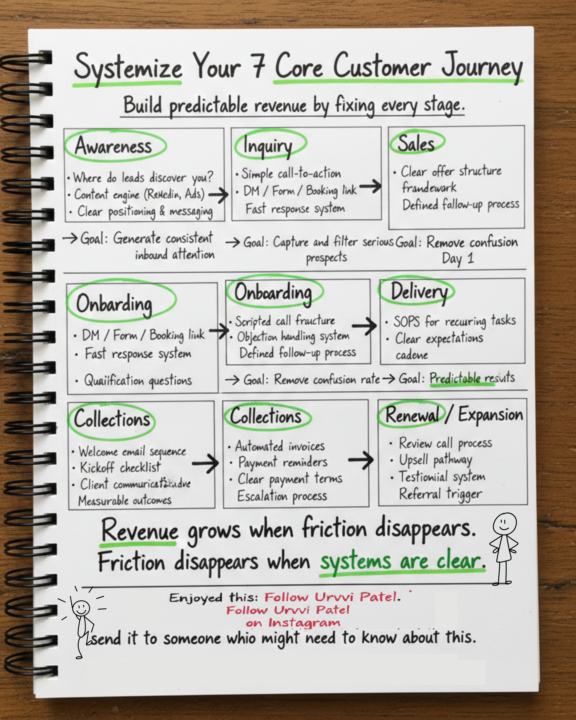 Systemize Your 7 Core Customer Journey
Build predictable revenue by fixing every stage.
Awareness
• Where do leads discover you?
• Content engine (ReHedin, Ads)
• Clear positioning & messaging
→ Goal: Generate consistent
inbound attention
Inquiry
• Simple call-to-action
• DM / Form / Booking link
Fast response system
→ Goal: Capture and filter serious
prospects
Sales
• Clear offer structure
frandewark
Defined fallow-up process
Goal: Remove confusion
Day 1
Onbarding
• DM / Form / Booking liuk
• Fast response system
• Quaiification questions
Onboarding
• Scripted call fructure
• Objection handling system
Defined follow-up process
→ Goal: Remove confusion rate
Delivery
• SOPS for recuring tasks
• Clear expectations
cadene
→ Goal: Predictable results
Collections
• Welcome email sequence
• Kickoff checklist
• Client
Measurable outcomes
Collections
• Automated invoices
• Payment reminders
• Clear payment terms
Escalation process
Renewal / Expansion
• Review call process
• Upsell pathway
• Testionial system
Referral trigger
Revenue grows when friction disappears.
Friction disappears when systems are clear.
Enjoyed this: Follow Urvvi Patel.
Follow Urvvi Patel
on Instagram
send it to someone whio might need to know about this.